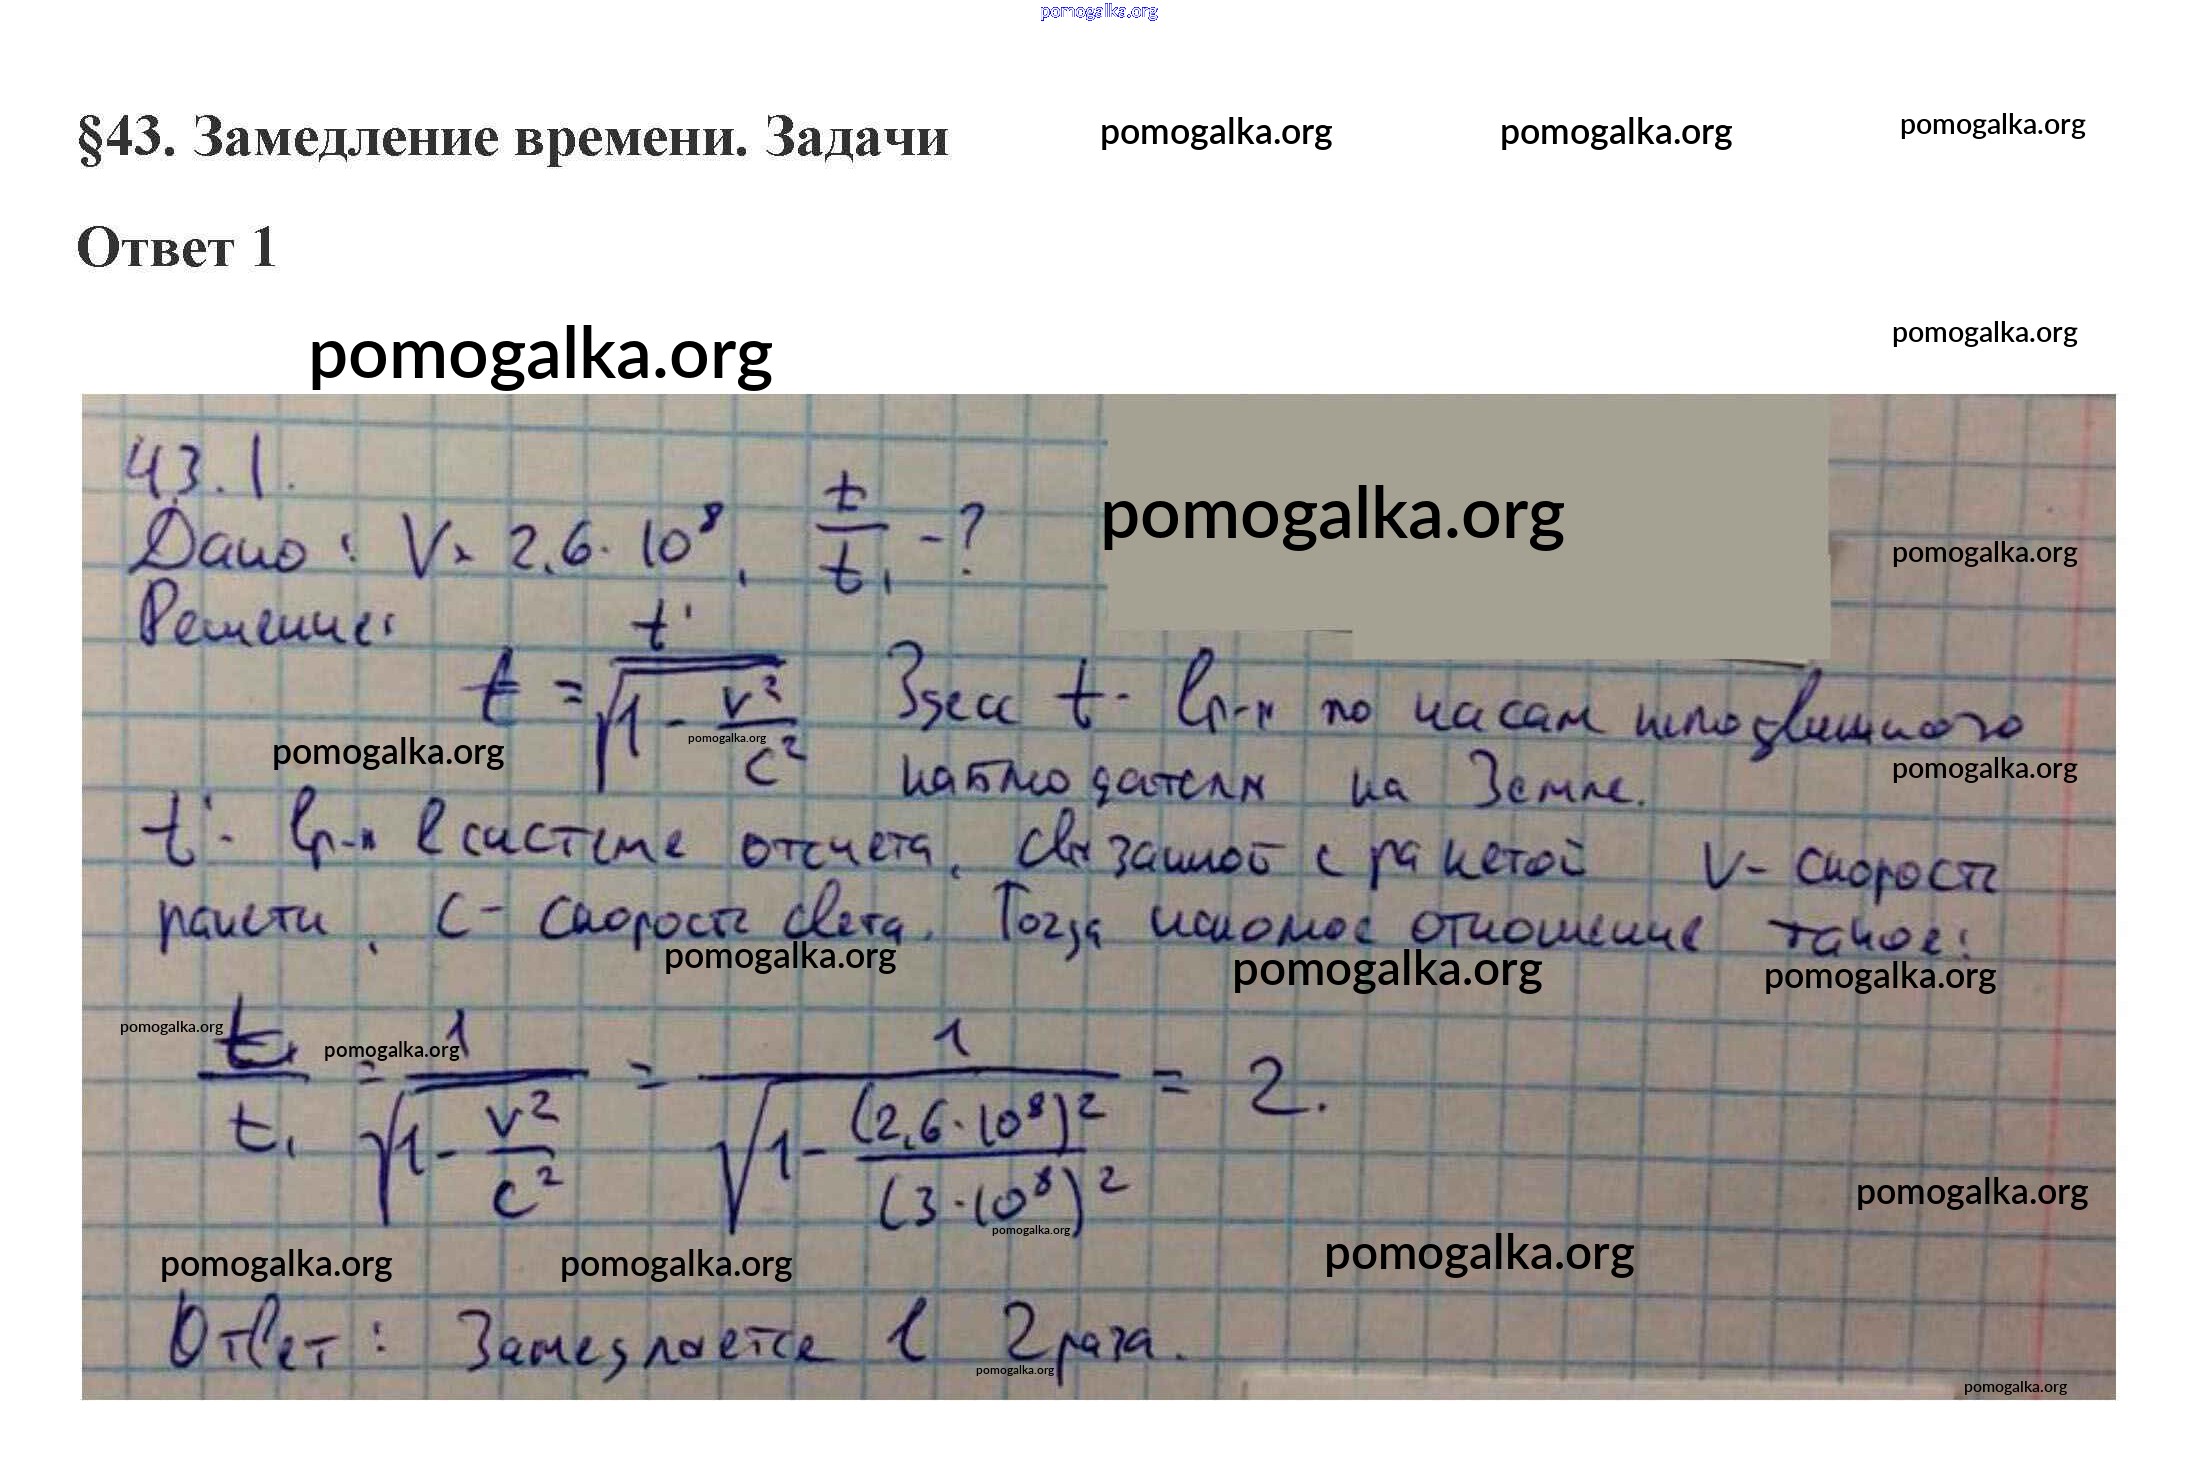 pomogalka.org
§43. Замедление времени. Задачи pomogalka.org pomogalka.org pomogalka.org
Ответ 1
pomogalka.org pomogalka.org
43.1.
pomogalka.org
Дано: V = 2,6 · 10⁸, t/t₁ - ? pomogalka.org
Решение:
t = t'/√(1 - v²/c²) Здесь t - вр-я по часам неподвижного
pomogalka.org pomogalka.org
наблюдателя на Земле. pomogalka.org
t' - вр-я в системе отсчета, связанной с ракетой V - скорость
ракеты, c - скорость света. Тогда искомое отношение такое:
pomogalka.org pomogalka.org pomogalka.org
pomogalka.org pomogalka.org
t/t₁ = 1/√(1 - v²/c²) = 1/√(1 - (2,6·10⁸)²/(3·10⁸)²) = 2.
pomogalka.org
pomogalka.org
pomogalka.org pomogalka.org pomogalka.org
Ответ: Замедляется в 2 раза.
pomogalka.org pomogalka.org